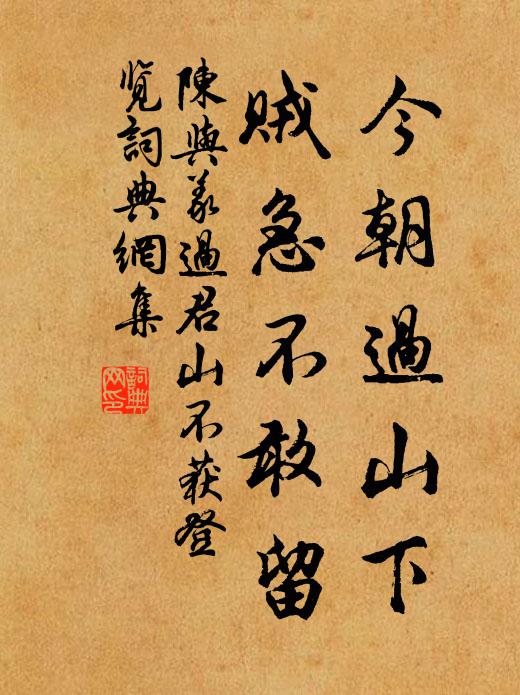 今朝過山下
賊急不敢留
陳與義過君山不获登
覽詞典網集
詞典
网印